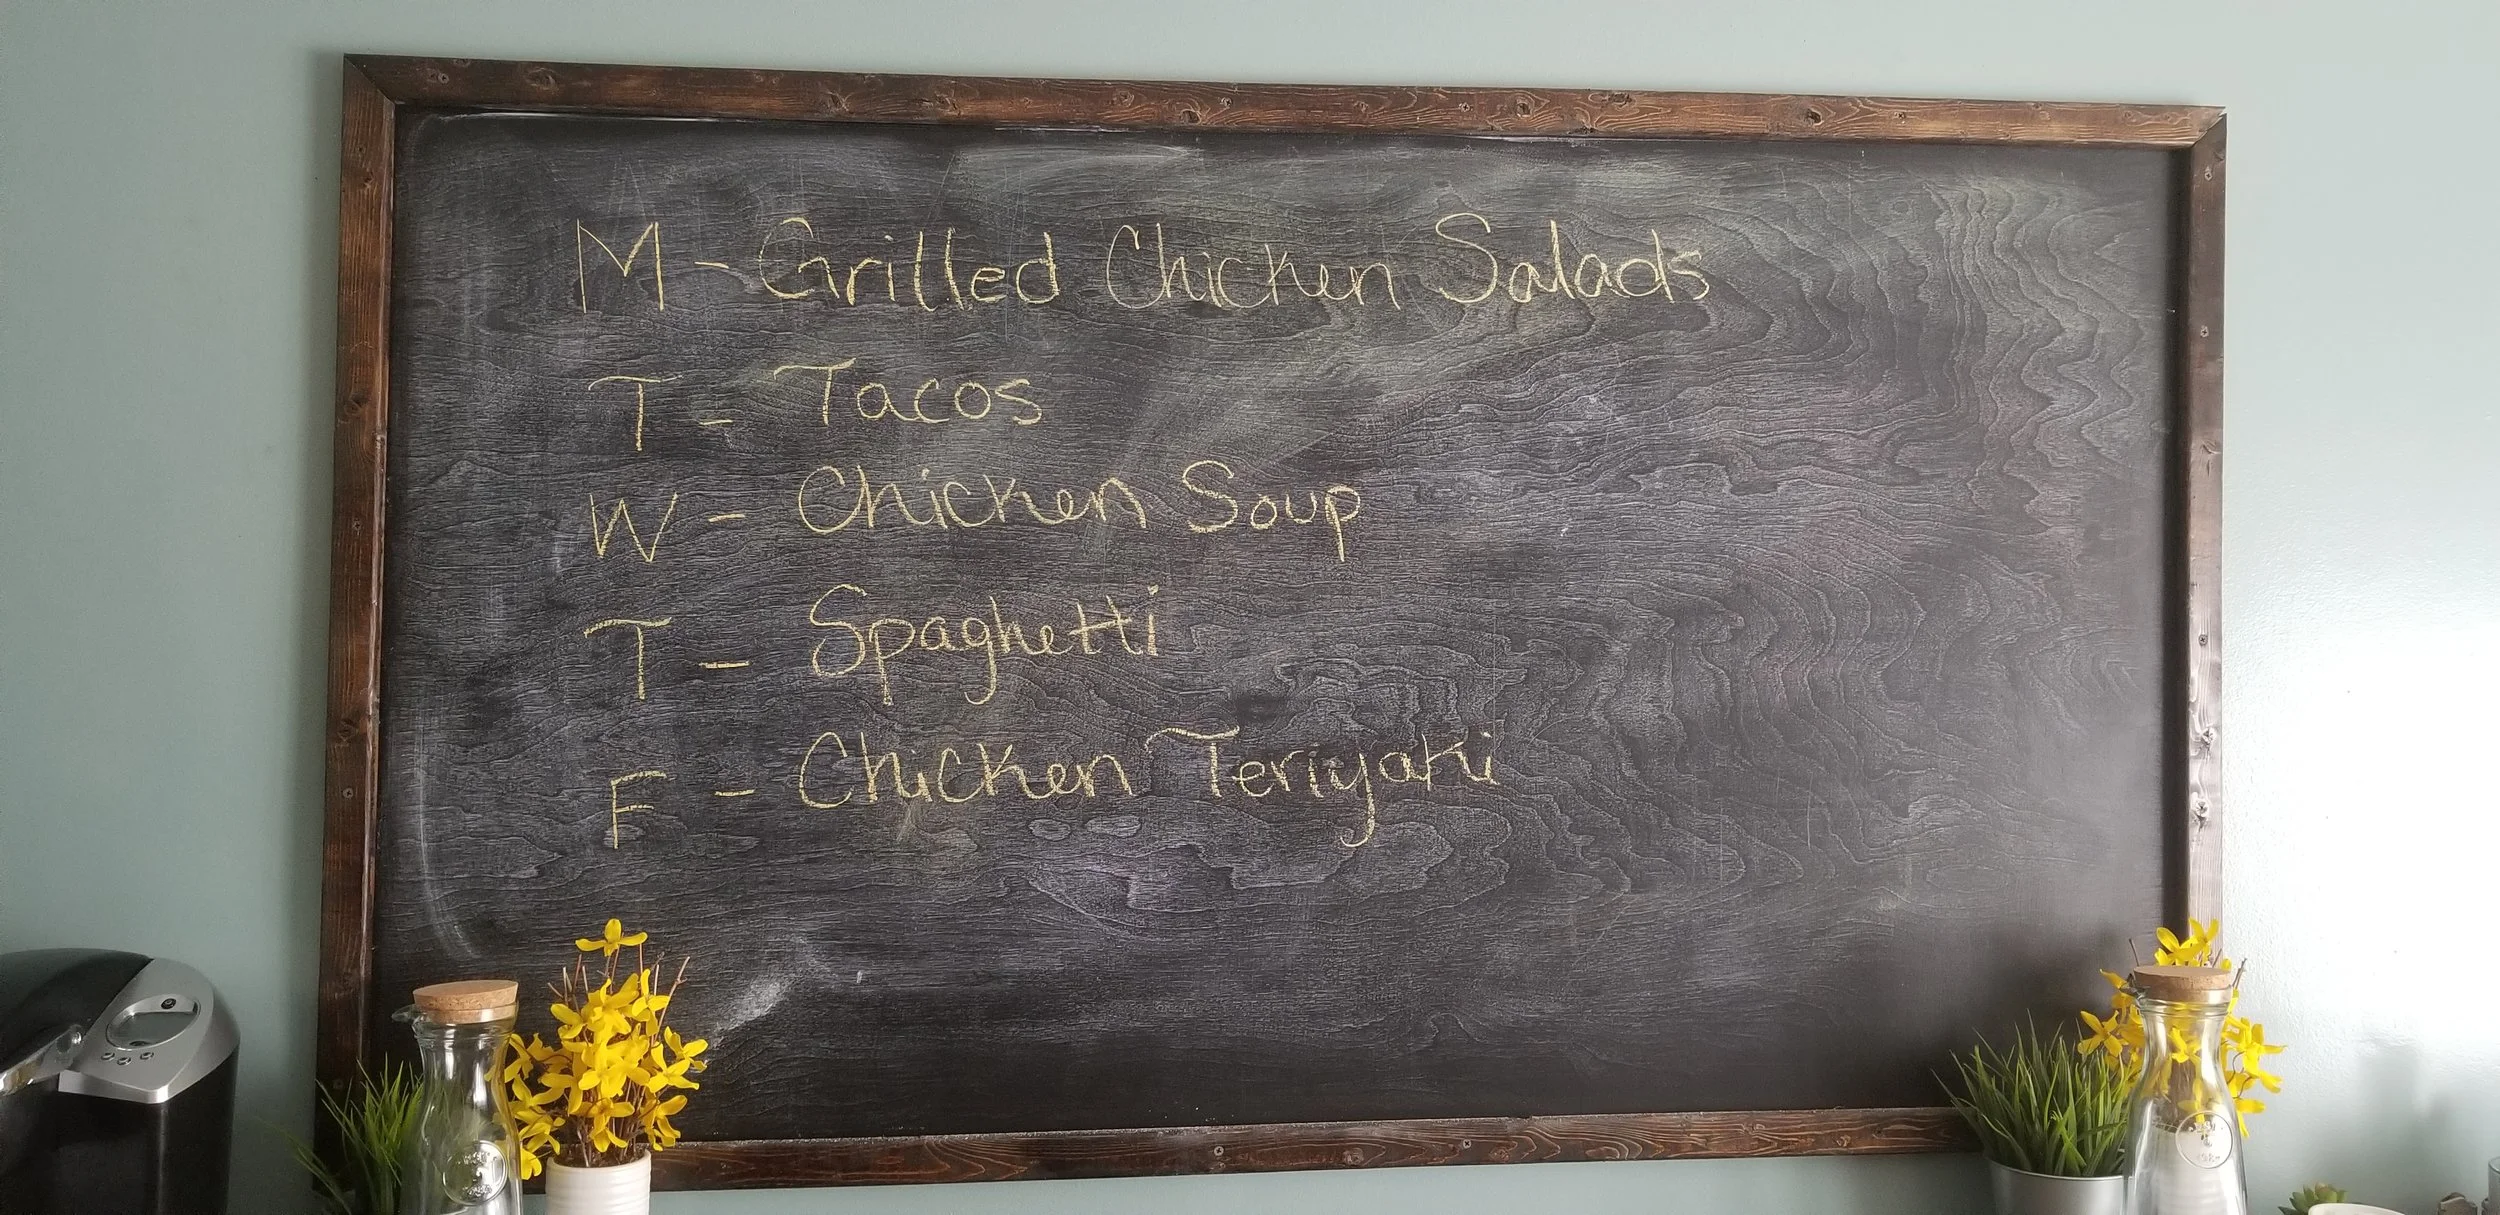 M - Grilled Chicken Salads
T - Tacos
W - Chicken Soup
T - Spaghetti
F - Chicken Teriyaki